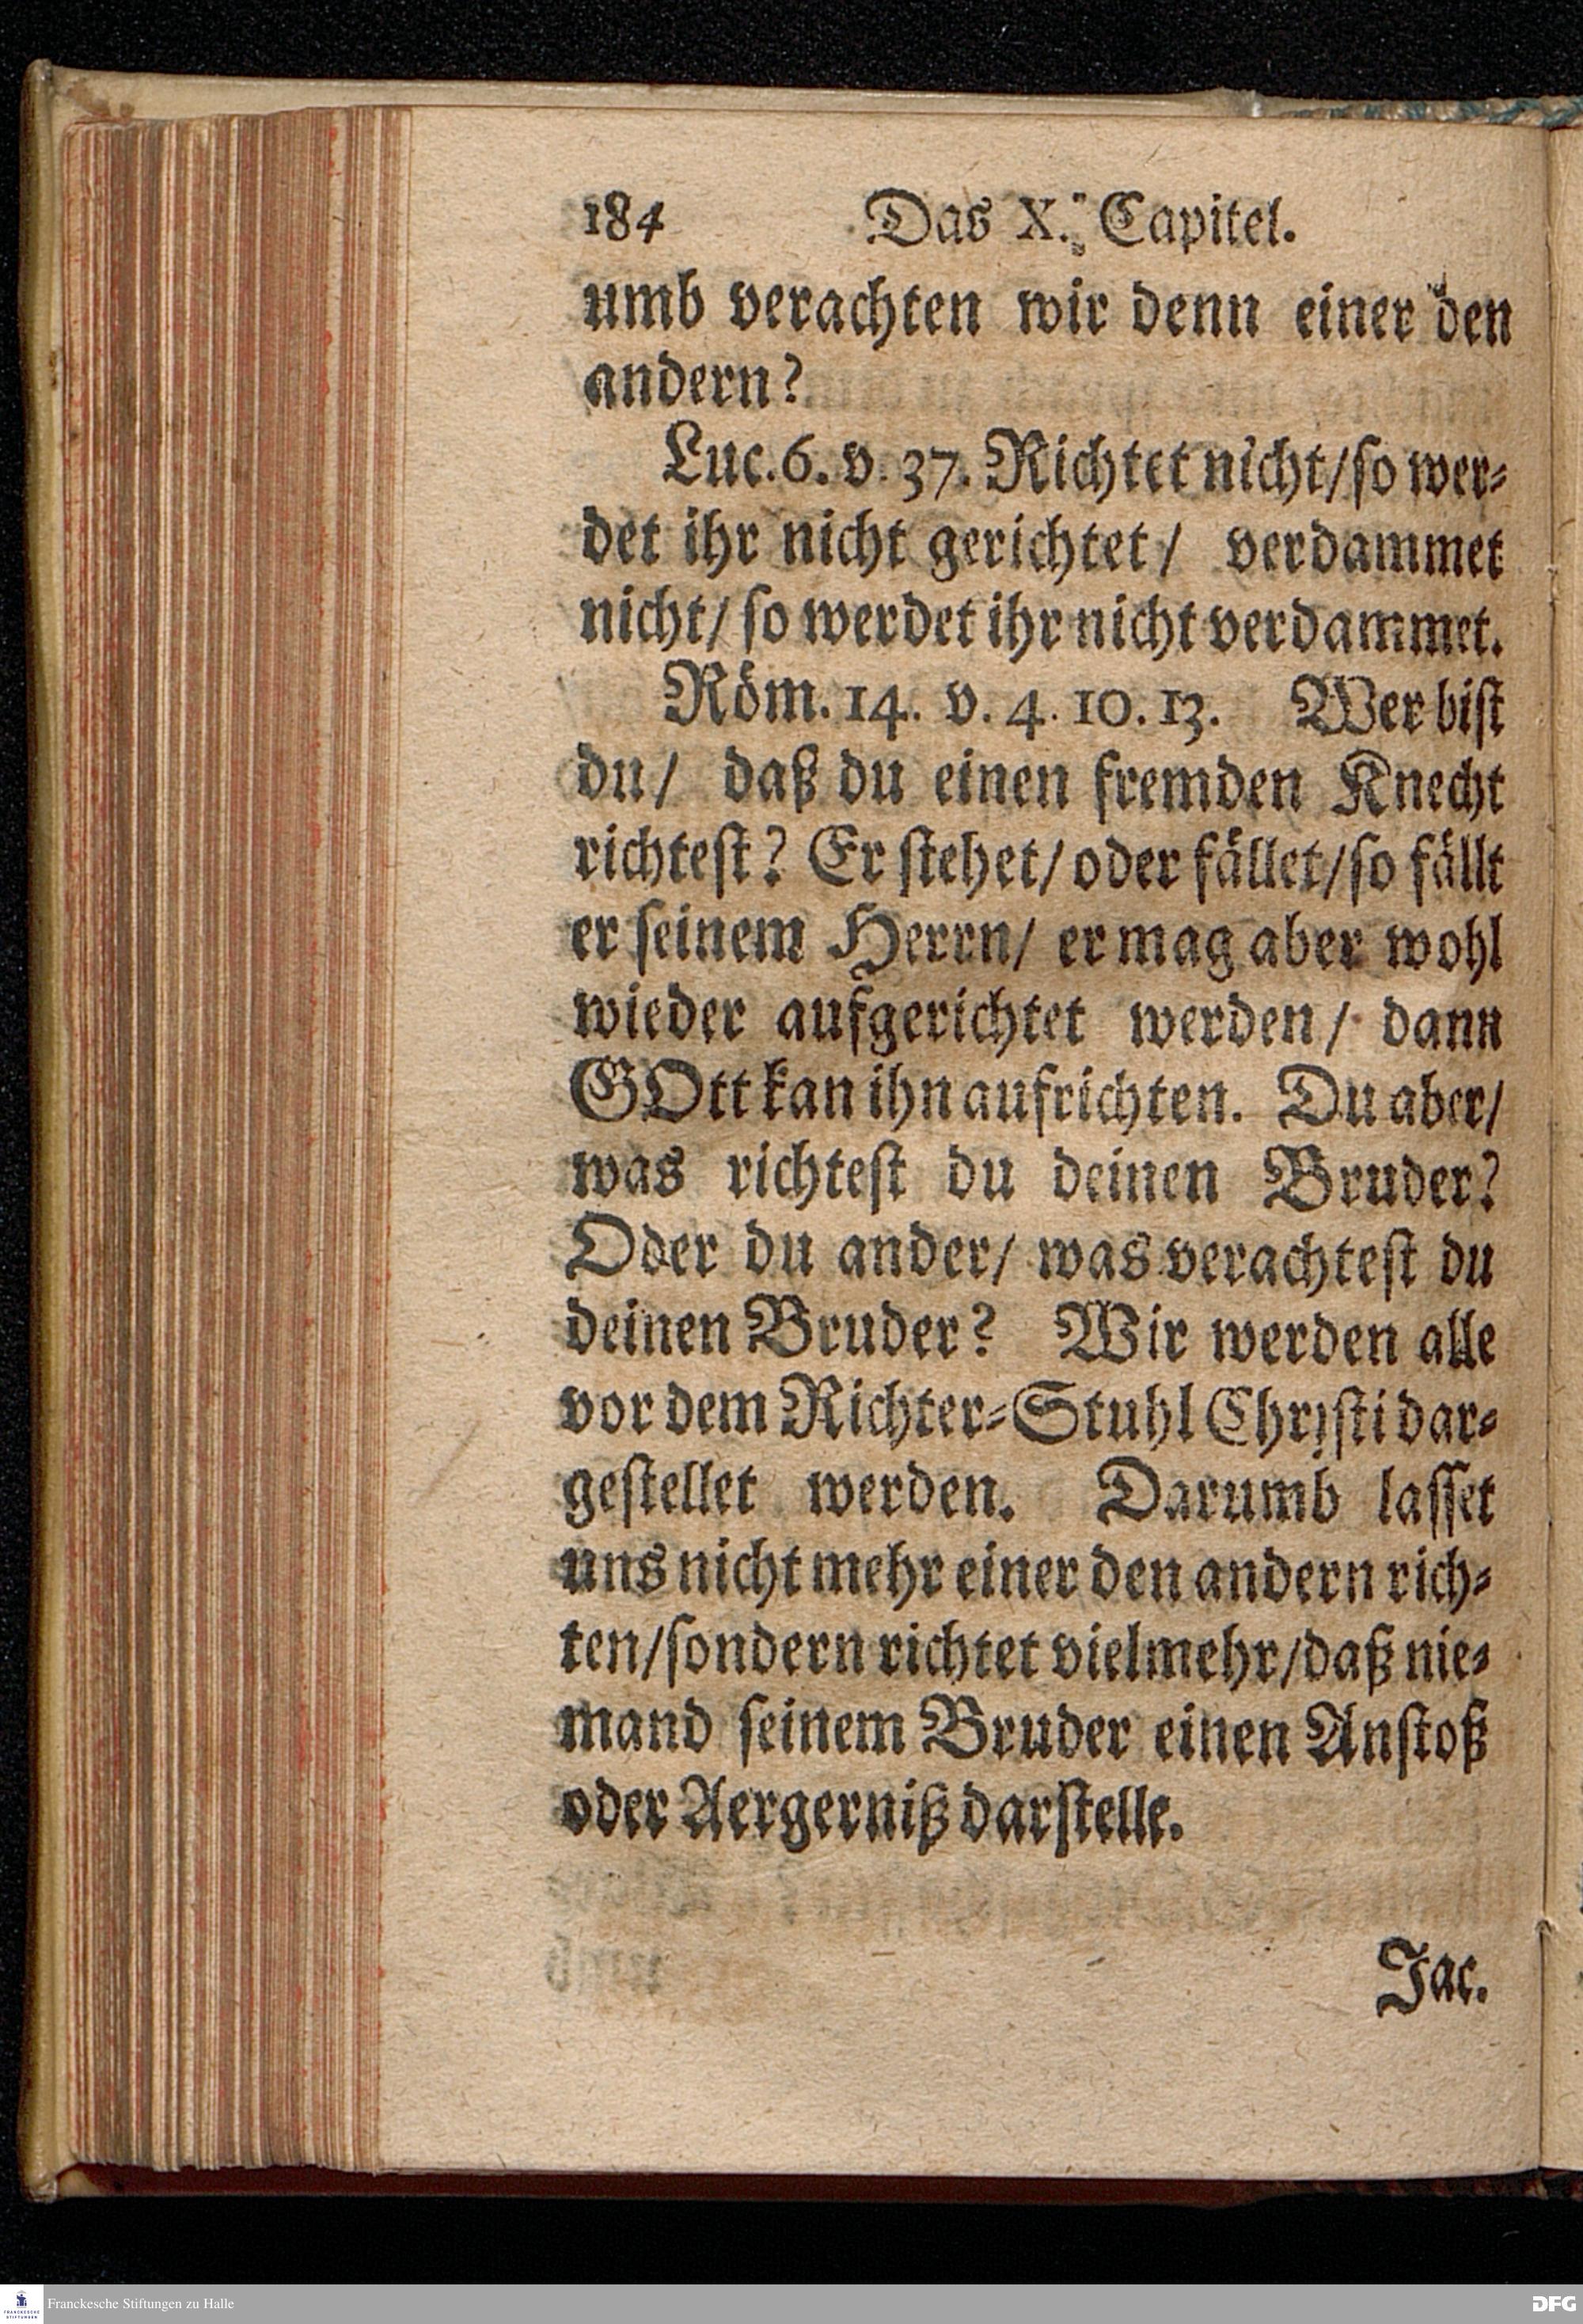 184 Das X. Capitel.
umb verachten wir denn einer den
andern?
Luc. 6. v. 37. Richtet nicht/ so wer⸗
det ihr nicht gerichtet/ verdammet
nicht/ so werdet ihr nicht verdammet.
Röm. 14. v. 4. 10. 13. Wer bist
du/ daß du einen fremden Knecht
richtest? Er stehet/ oder fället/ so fällt
er seinem Herrn/ er mag aber wohl
wieder aufgerichtet werden/ dann
GOtt kan ihn aufrichten. Du aber/
was richtest du deinen Bruder?
Oder du ander/ was verachtest du
deinen Bruder? Wir werden alle
vor dem Richter⸗Stuhl Christi dar⸗
gestellet werden. Darumb lasset
uns nicht mehr einer den andern rich⸗
ten/ sondern richtet vielmehr/ daß nie⸗
mand seinem Bruder einen Anstoß
oder Aergerniß darstelle.
Jac.
FRANCKESCHE
STIFTUNGEN
Franckesche Stiftungen zu Halle
DFG